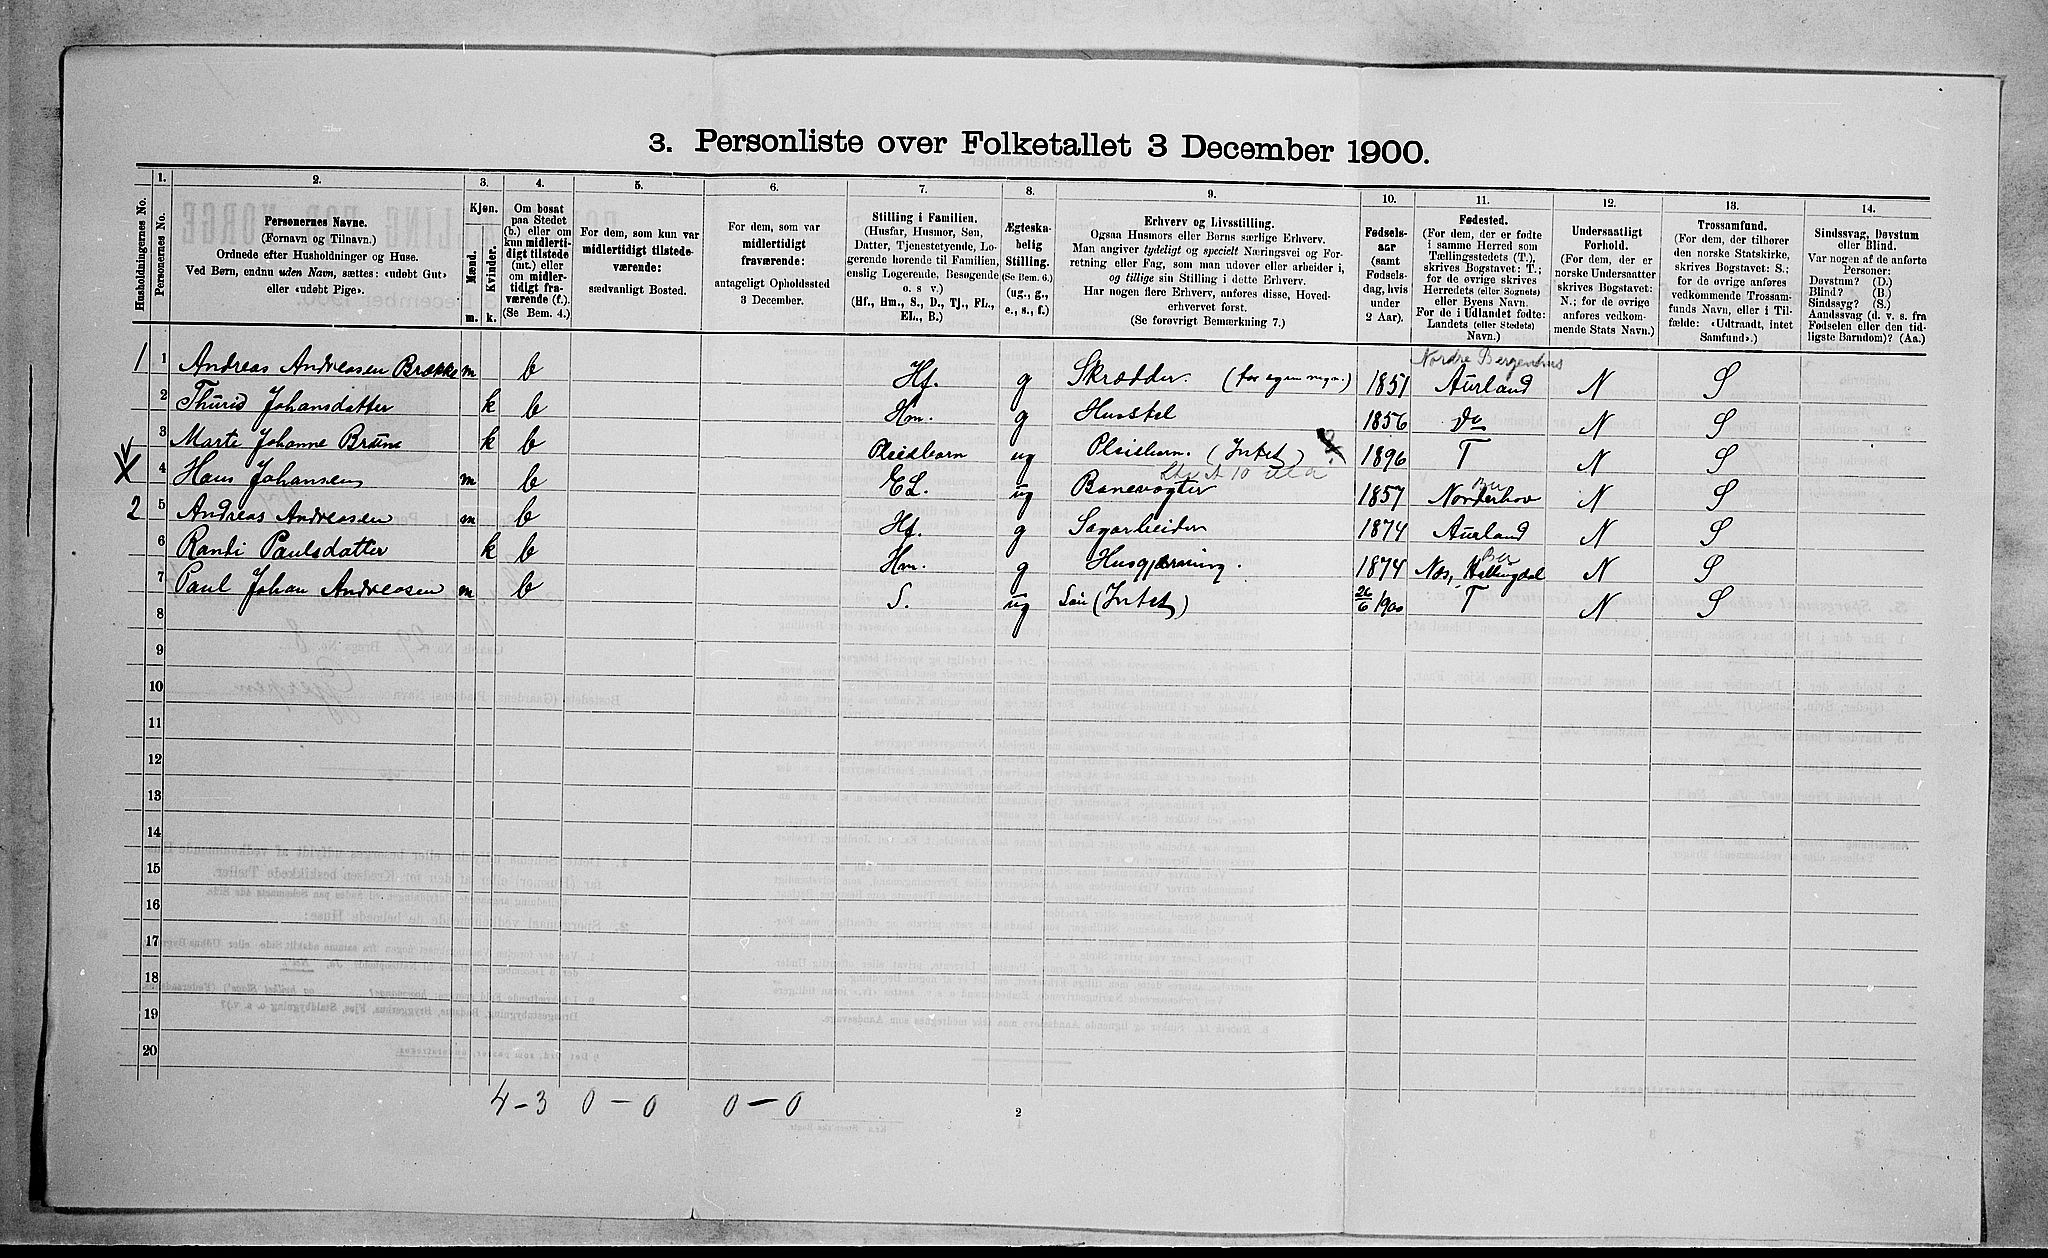 3. Personliste over Folketallet 3 December 1900.
Husholdningernes No.
1.
Personernes No.
2.
Personernes Navne.
(Fornavn og Tilnavn.)
Ordnede efter Husholdninger og Huse.
Ved Børn, endnu uden Navn, sættes: «udøbt Gut»
eller «udøbt Pige».
3.
Kjøn.
Mænd.
Kvinder.
m.
k.
4.
Om bosat
paa Stedet
(b.) eller om
kun midlerti-
digt tilstede
(mt.) eller
om midler-
tidigt fra-
værende (f.).
(Se Bem. 4.)
5.
For dem, som kun var
midlertidigt tilstede-
værende:
sædvanligt Bosted.
6.
For dem, som var
midlertidigt
fraværende:
antageligt Opholdssted
3 December.
7.
Stilling i Familien.
(Husfar, Husmor, Søn,
Datter, Tjenestetyende, Lo-
gerende hørende til Familien,
enslig Logerende, Besøgende
o. s v.)
(Hf., Hm., S., D., Tj., FL.,
EL., B.)
8.
Ægteska-
belig
Stilling.
(Se Bem. 6.)
(ug., g.,
e., s., f.)
9.
Erhverv og Livsstilling.
Ogsaa Husmors eller Børns særlige Erhverv.
Man angiver tydeligt og specielt Næringsvei og For-
retning eller Fag, som man udøver eller arbeider i,
og tillige sin Stilling i dette Erhverv.
Har nogen flere Erhverv, anføres disse, Hoved-
erhvervet først.
(Se forøvrigt Bemærkning 7.)
10.
Fødsels-
aar
(samt
Fødsels-
dag, hvis
under
2 Aar).
11.
Fødested.
(For dem, der er fødte
i samme Herred som
Tællingsstedets (T.),
skrives Bogstavet: T.;
for de øvrige skrives
Herredets (eller Sognets)
eller Byens Navn.
For de i Udlandet fødte:
Landets (eller Stedets)
Navn.)
12.
Undersaatligt
Forhold.
(For dem, der er
norske Undersaatter
skrives Bogstavet:
N.; for de øvrige
anføres vedkom-
mende Stats Navn.)
13.
Trossamfund.
(For dem, der tilhører
den norske Statskirke,
skrives Bogstavet: S.;
for de øvrige anføres
vedkommende Trossam-
funds Navn, eller i Til-
fælde: «Udtraadt, intet
Samfund».)
14.
Sindssvag, Døvstum
eller Blind.
Var nogen af de anførte
Personer:
Døvstum? (D.)
Blind? (B.)
Sindssyg? (S.)
Aandssvag (d. v. s. fra
Fødselen eller den tid-
ligste Barndom)? (Aa.)
Nordre Bergenhus
1 1 Andreas Andreasen Brække m b Hf. g Skrædder. (for egen regn.) 1851 Aurland N S
2 Thurid Johansdatter k b Hm. g Husstel 1856 Do N S
3 Marte Johanne Bruna k b Pleiebarn ug Pleiebarn. (Intet) 1896 T N S
4 Hans Johansen m b EL. ug Banevogter 1857 Norderhov N S
2 5 Andreas Andreasen m b Hf. g Sagarbeider 1874 Aurland N S
6 Randi Paulsdatter k b Hm. g Husgjerning. 1874 Næs, Hallingdal N S
7 Paul Johan Andreasen m b S. ug Søn (Intet) 26/6 1900 T N S
8
9
10
11
12
13
14
15
16
17
18
19
20
4 - 3 0 - 0 0 - 0
2